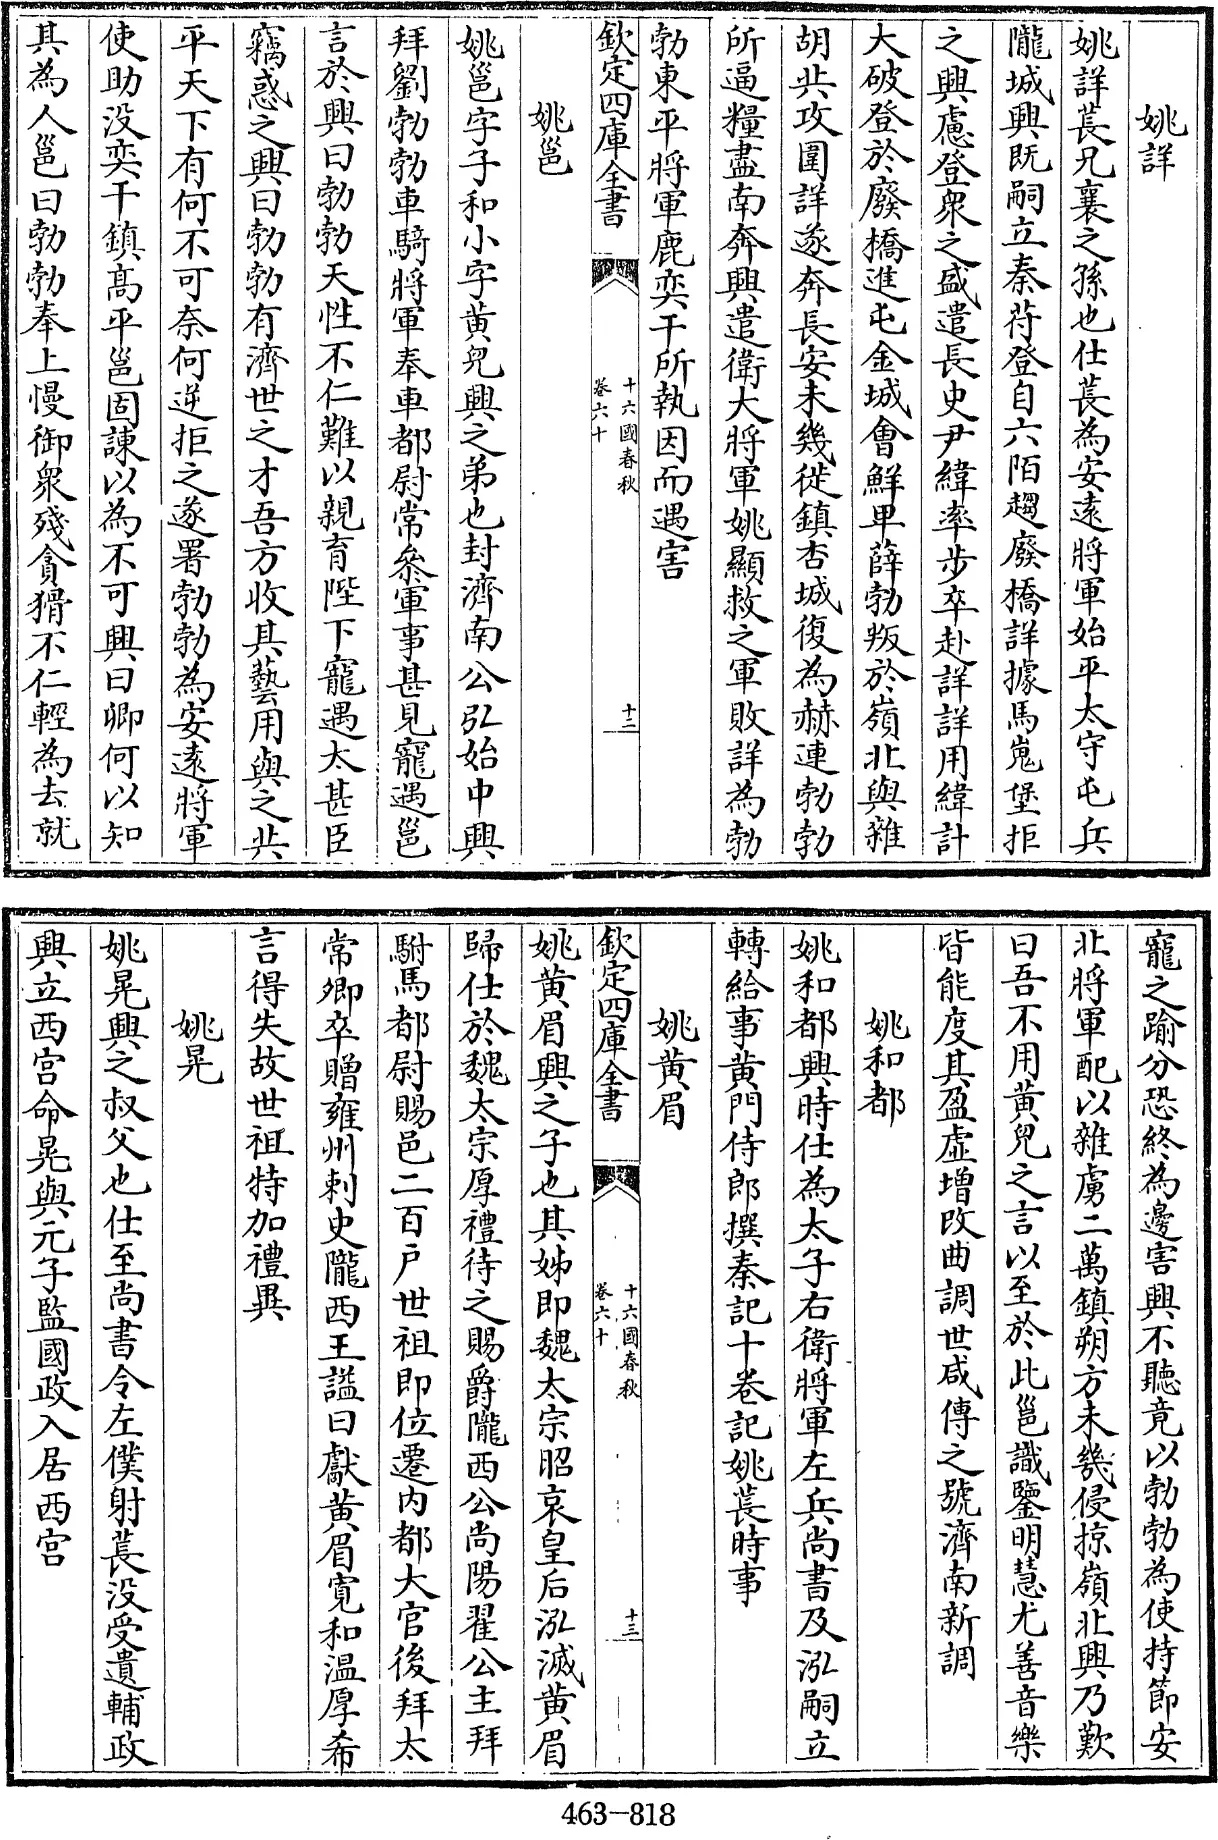 姚詳
姚詳萇兄襄之孫也仕萇為安逺將軍始平太守屯兵
隴城興既嗣立秦苻登自六陌趨廢橋詳據馬嵬堡拒
之興慮登衆之盛遣長史尹緯率步卒赴詳詳用緯計
大破登於廢橋進屯金城㑹鮮卑薛勃叛於嶺北與雜
胡共攻圍詳遂奔長安未幾徙鎮杏城復為赫連勃勃
所逼糧盡南奔興遣衛大將軍姚顯救之軍敗詳為勃
勃東平將軍鹿奕干所執因而遇害
欽定四庫全書
十六國春秋
卷六十
十二
姚邕
姚邕字子和小字黄兒興之弟也封濟南公弘始中興
拜劉勃勃車騎將軍奉車都尉常叅軍事甚見寵遇邕
言於興曰勃勃天性不仁難以親育陛下寵遇太甚臣
竊惑之興曰勃勃有濟世之才吾方收其藝用與之共
平天下有何不可奈何逆拒之遂署勃勃為安逺將軍
使助没奕干鎮髙平邕固諫以為不可興曰卿何以知
其為人邕曰勃勃奉上慢御衆殘貪猾不仁輕為去就
寵之踰分恐終為邊害興不聽竟以勃勃為使持節安
北將軍配以雜虜二萬鎮朔方未幾侵掠嶺北興乃歎
曰吾不用黄兒之言以至於此邕識鑒明慧尤善音樂
皆能度其盈虚增改曲調世咸傳之號濟南新調
姚和都
姚和都興時仕為太子右衛將軍左兵尚書及泓嗣立
轉給事黄門侍郎撰秦記十卷記姚萇時事
姚黄眉
欽定四庫全書
十六國春秋
卷六十
十三
姚黄眉興之子也其姊即魏太宗昭哀皇后泓滅黄眉
歸仕於魏太宗厚禮待之賜爵隴西公尚陽翟公主拜
駙馬都尉賜邑二百户世祖即位遷内都大官後拜太
常卿卒贈雍州刺史隴西王謚曰獻黄眉寛和温厚希
言得失故世祖特加禮異
姚晃
姚晃興之叔父也仕至尚書令左僕射萇没受遺輔政
興立西宫命晃與元子監國政入居西宫
463-818